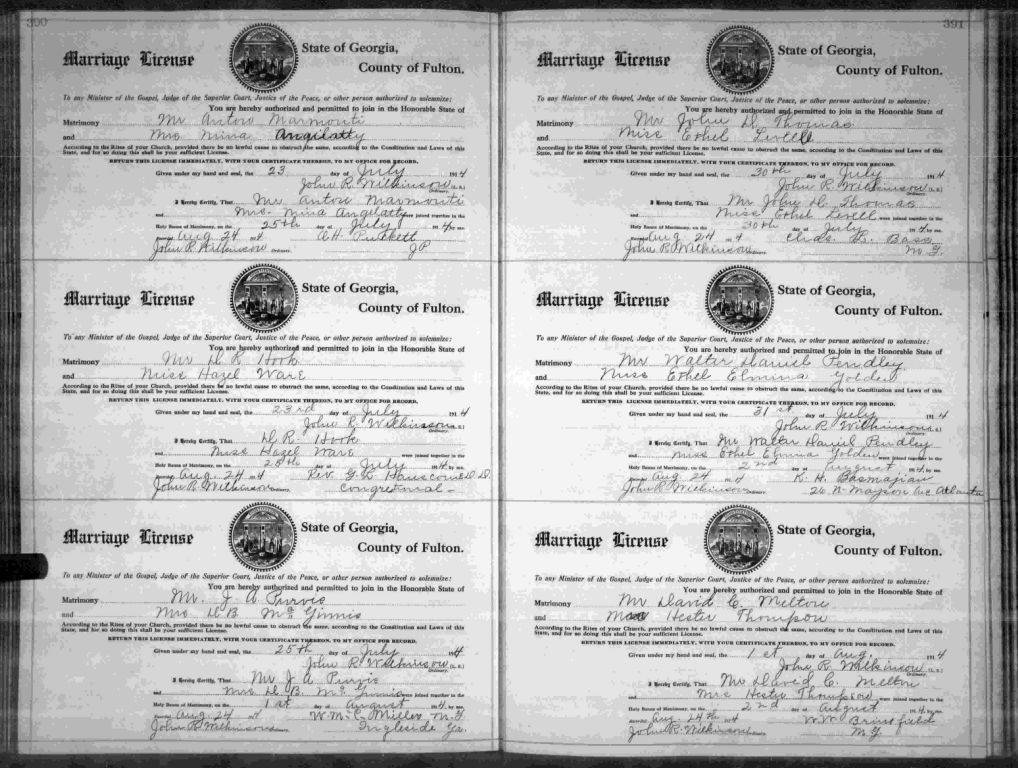 390
Marriage License
State of Georgia,
County of Fulton.
To any Minister of the Gospel, Judge of the Superior Court, Justice of the Peace, or other person authorized to solemnize:
You are hereby authorized and permitted to join in the Honorable State of
Matrimony Mr Anton Marmonti
and Mrs Mina Angilatty
According to the Rites of your Church, provided there be no lawful cause to obstruct the same, according to the Constitution and Laws of this
State, and for so doing this shall be your sufficient License.
RETURN THIS LICENSE IMMEDIATELY, WITH YOUR CERTIFICATE THEREON, TO MY OFFICE FOR RECORD.
Given under my hand and seal, the 23 day of July 1914
John R. Wilkinson (L.S.)
Ordinary.
I Hereby Certify, That Mr Anton Marmonti
and Mrs. Mina Angelatty were joined together in the
Holy Banns of Matrimony, on the 25th day of July 1914 by me.
Aug 24 1914 A H Puckett
John R Wilkinson Ordinary. J P
Marriage License
State of Georgia,
County of Fulton.
To any Minister of the Gospel, Judge of the Superior Court, Justice of the Peace, or other person authorized to solemnize:
You are hereby authorized and permitted to join in the Honorable State of
Matrimony Mr D. R. Hook
and Miss Hazel Ware
According to the Rites of your Church, provided there be no lawful cause to obstruct the same, according to the Constitution and Laws of this
State, and for so doing this shall be your sufficient License.
RETURN THIS LICENSE IMMEDIATELY, WITH YOUR CERTIFICATE THEREON, TO MY OFFICE FOR RECORD.
Given under my hand and seal, the 23rd day of July 1914
John R. Wilkinson (L.S.)
Ordinary.
I Hereby Certify, That D. R. Hook
and Miss Hazel Ware were joined together in the
Holy Banns of Matrimony, on the 25th day of July 1914 by me.
Aug. 24 1914 Rev. G. L.
John R. Wilkinson Ordinary.
Marriage License
State of Georgia,
County of Fulton.
To any Minister of the Gospel, Judge of the Superior Court, Justice of the Peace, or other person authorized to solemnize:
You are hereby authorized and permitted to join in the Honorable State of
Matrimony Mr. J A Purvis
and Mrs D B McGinnis
According to the Rites of your Church, provided there be no lawful cause to obstruct the same, according to the Constitution and Laws of this
State, and for so doing this shall be your sufficient License.
RETURN THIS LICENSE IMMEDIATELY, WITH YOUR CERTIFICATE THEREON, TO MY OFFICE FOR RECORD.
Given under my hand and seal, the 25th day of July 1914
John R. Wilkinson (L.S.)
Ordinary.
I Hereby Certify, That Mr J A Purvis
and Mrs D. B. McGinnis were joined together in the
Holy Banns of Matrimony, on the 1st day of August 1914 by me.
Aug 24 1914 W. M. C. Miller M.G.
John R Wilkinson Ingleside Ga.
391
Marriage License
State of Georgia,
County of Fulton.
To any Minister of the Gospel, Judge of the Superior Court, Justice of the Peace, or other person authorized to solemnize:
You are hereby authorized and permitted to join in the Honorable State of
Matrimony Mr John D. Thomas
and Miss Ethel Livell
According to the Rites of your Church, provided there be no lawful cause to obstruct the same, according to the Constitution and Laws of this
State, and for so doing this shall be your sufficient License.
RETURN THIS LICENSE IMMEDIATELY, WITH YOUR CERTIFICATE THEREON, TO MY OFFICE FOR RECORD.
Given under my hand and seal, the 30th day of July 1914
John R. Wilkinson (L.S.)
Ordinary.
I Hereby Certify, That Mr John D. Thomas
and Miss Ethel Livell were joined together in the
Holy Banns of Matrimony, on the 30th day of July 1914 by me.
Aug 24 1914 Bass
John R. Wilkinson Ordinary. M. G.
Marriage License
State of Georgia,
County of Fulton.
To any Minister of the Gospel, Judge of the Superior Court, Justice of the Peace, or other person authorized to solemnize:
You are hereby authorized and permitted to join in the Honorable State of
Matrimony Mr Walter Daniel Pendley
and Miss Ethel Elmina Golden
According to the Rites of your Church, provided there be no lawful cause to obstruct the same, according to the Constitution and Laws of this
State, and for so doing this shall be your sufficient License.
RETURN THIS LICENSE IMMEDIATELY, WITH YOUR CERTIFICATE THEREON, TO MY OFFICE FOR RECORD.
Given under my hand and seal, the 31st day of July 1914
John R Wilkinson (L.S.)
Ordinary.
I Hereby Certify, That Mr Walter Daniel Pendley
and Miss Ethel Elmina Golden were joined together in the
Holy Banns of Matrimony, on the 2nd day of August 1914 by me.
Aug 24 1914 K. H. Basmajian
John R Wilkinson Ordinary. 26 N Mayson Ave Atlanta
Marriage License
State of Georgia,
County of Fulton.
To any Minister of the Gospel, Judge of the Superior Court, Justice of the Peace, or other person authorized to solemnize:
You are hereby authorized and permitted to join in the Honorable State of
Matrimony Mr David C. Melton
and Hester Thompson
According to the Rites of your Church, provided there be no lawful cause to obstruct the same, according to the Constitution and Laws of this
State, and for so doing this shall be your sufficient License.
RETURN THIS LICENSE IMMEDIATELY, WITH YOUR CERTIFICATE THEREON, TO MY OFFICE FOR RECORD.
Given under my hand and seal, the 1st day of Aug. 1914
John R. Wilkinson (L.S.)
Ordinary.
I Hereby Certify, That Mr David C. Melton
and Mrs Hester Thompson were joined together in the
Holy Banns of Matrimony, on the 2nd day of August 1914 by me.
Aug. 24th 1914 W W Brinsfield
John R. Wilkinson M. G.